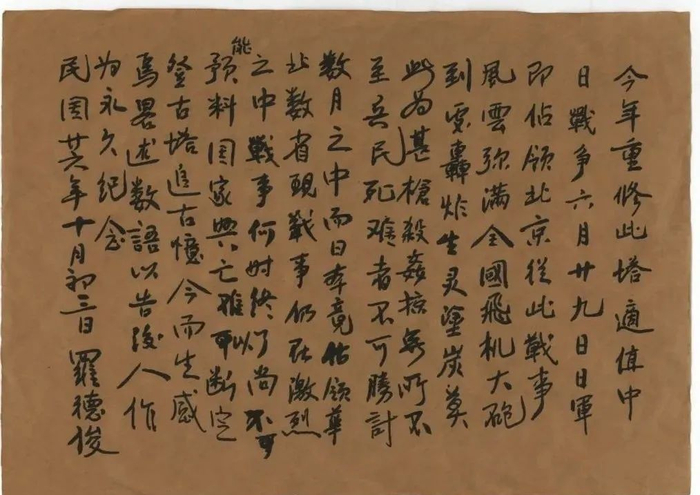 今年重修此塔適值中
日戰争六月廿九日日軍
即佔領北京從此戰事
風雲弥满全國飛机大砲
到處轟炸生灵塗炭莫
此为甚槍殺姦掠無所不
至兵民死难者不可勝計
数月之中而日本竟佔領華
北数省現戰事仍在激烈
之中戰事何时终了尚不可
能
预料国家興亡难以断定
登古塔追古憶今而生感
焉畧述数語以告後人作
为永久纪念
民国廿六年十月初三日 羅德俊